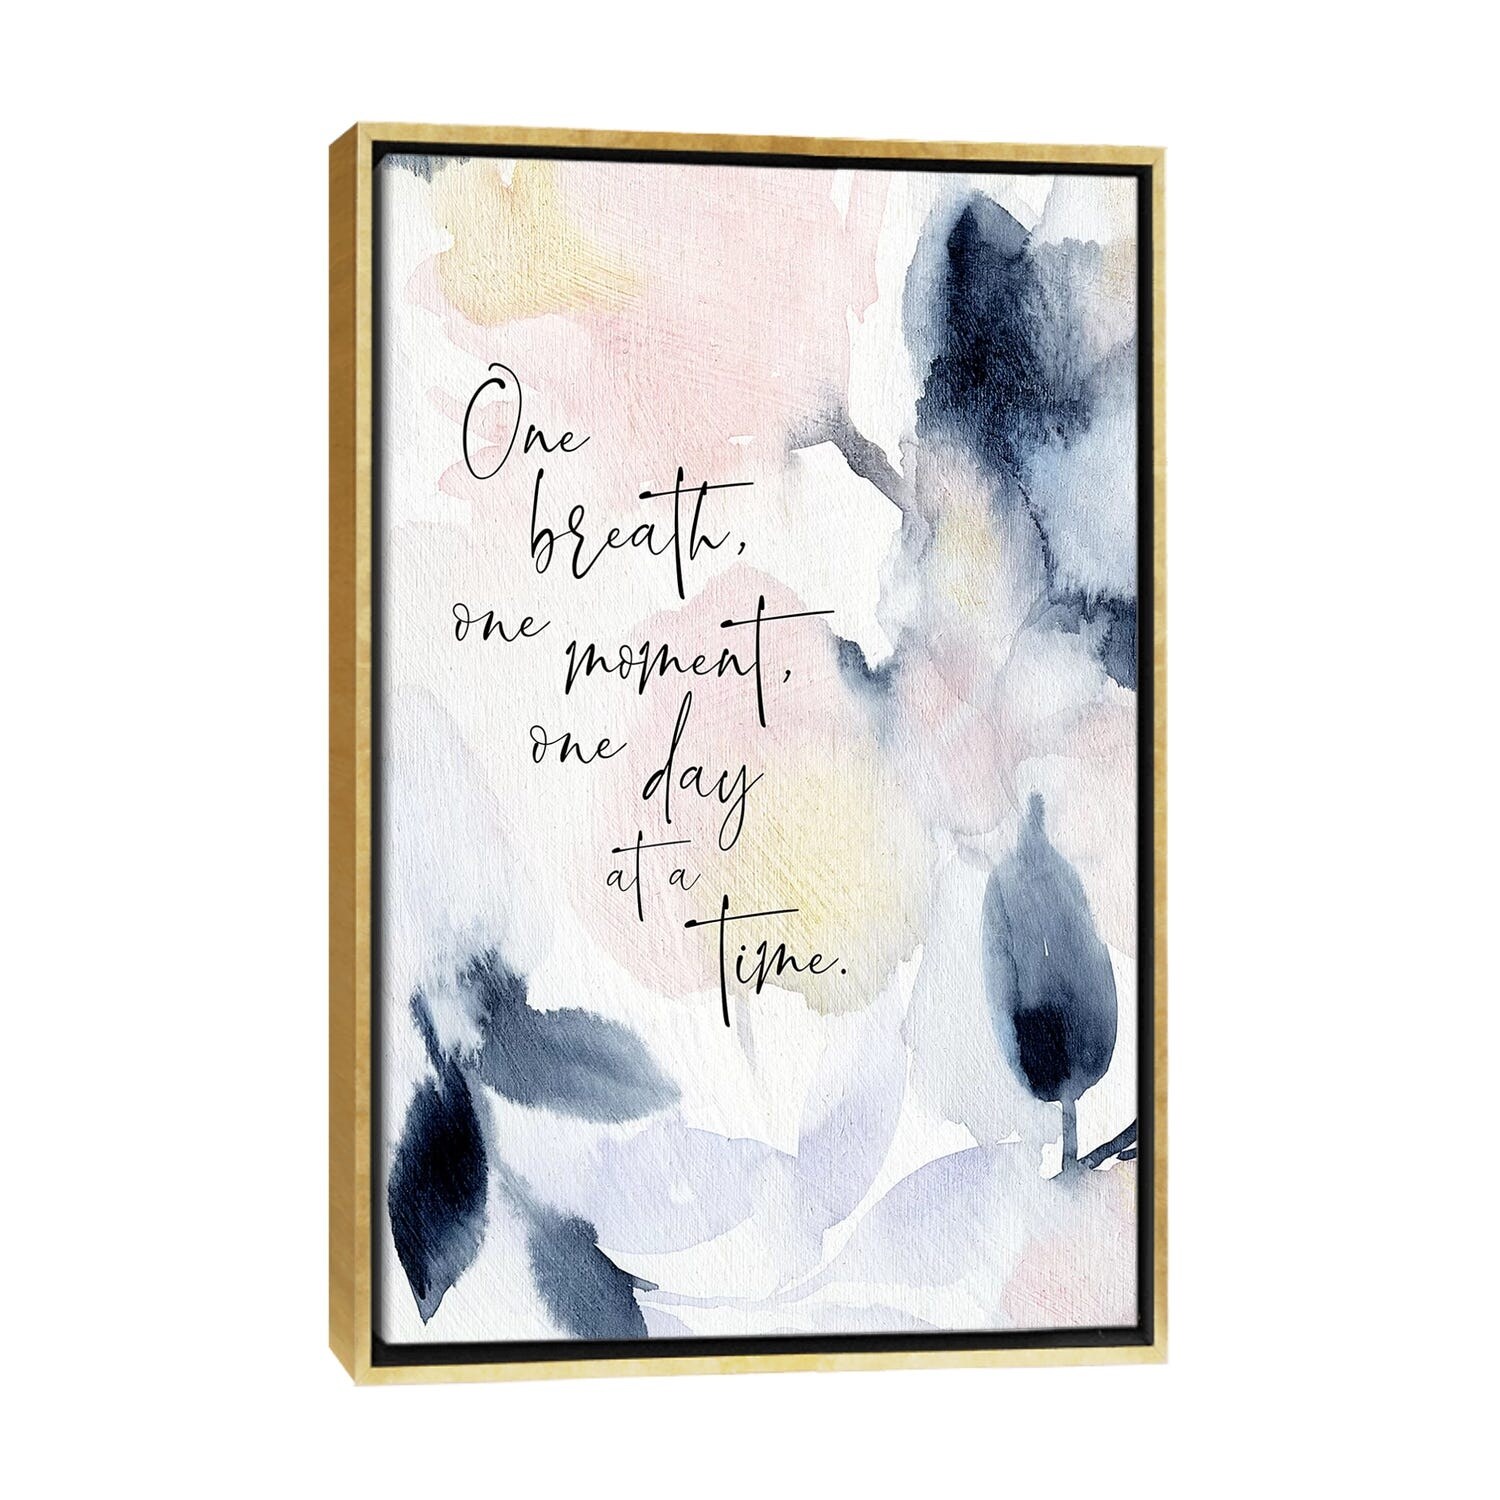 One
breath,
one
moment,
one
day
at a
time.